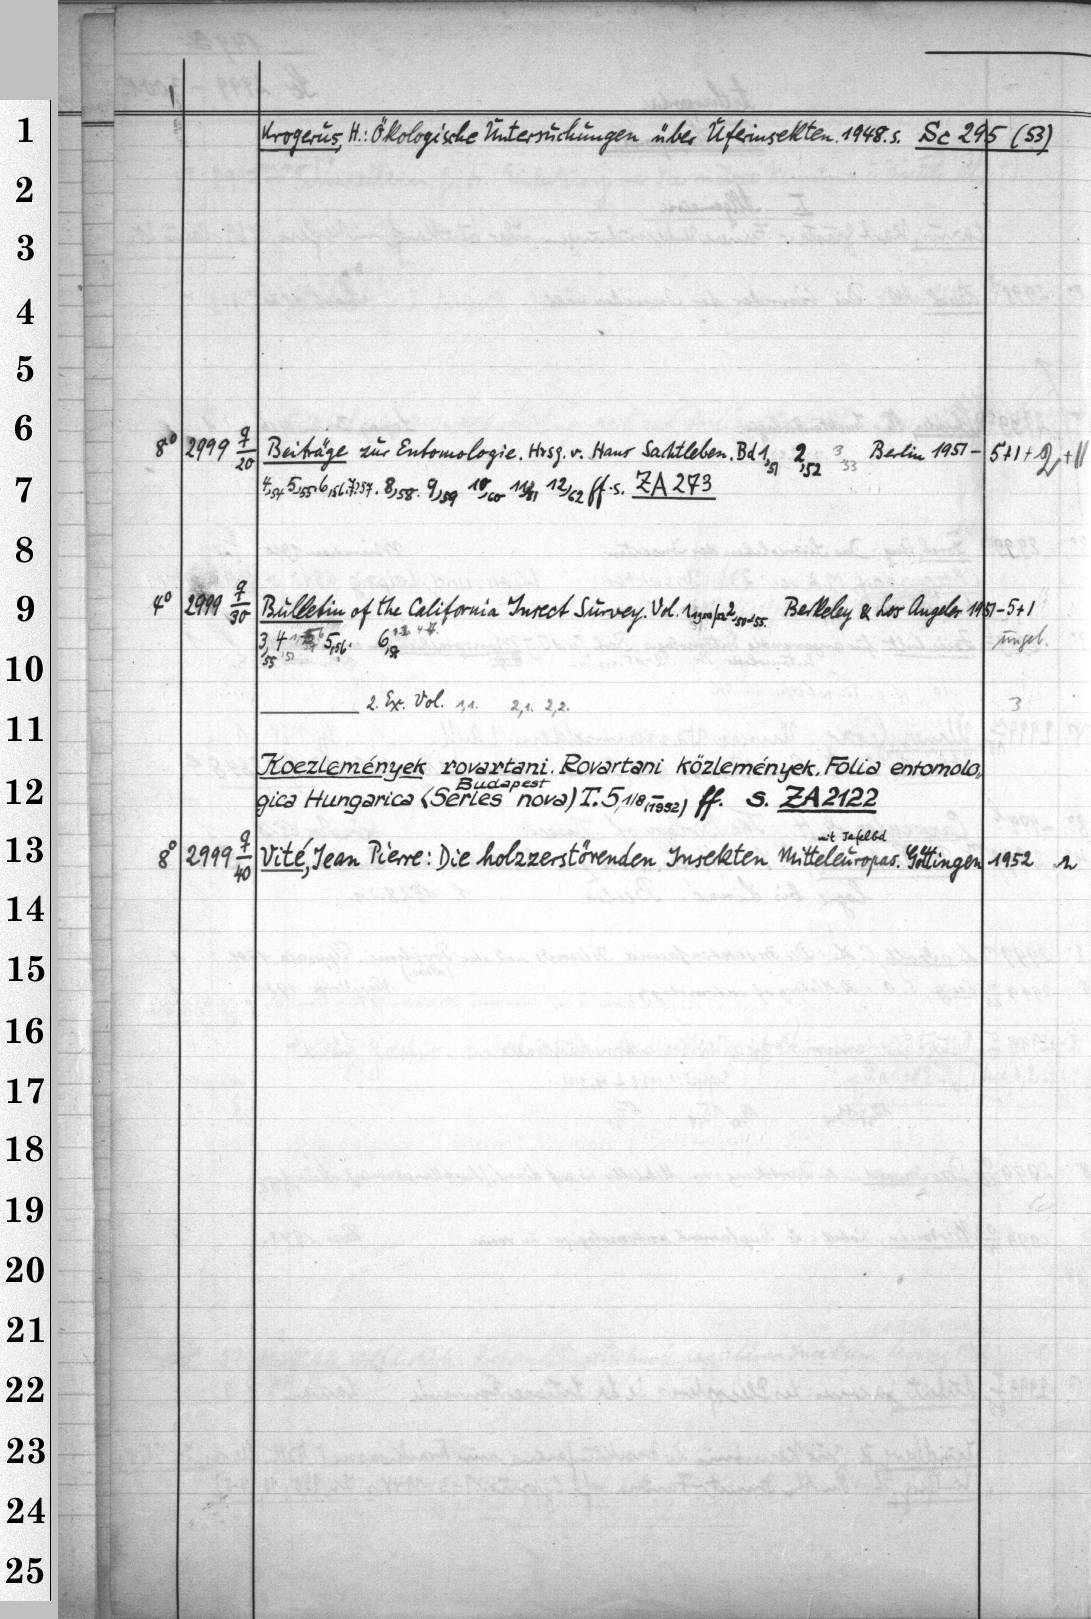 1 Krogerus, H.: Ökologische Untersuchungen über Uferinsekten. 1948. s. Sc 295 (53)
2
3
4
5
6 8° 2999 q/20 Beiträge zur Entomologie. Hrsg. v. Hans Sachtleben. Bd 1,51 2,52 3,53 Berlin 1951– 5+1+2+11
7 4,54 5,55. 6,56. 7,57. 8,58. 9,59 10,60 11,61 12,62 ff. s. ZA 273
8
9 4° 2999 q/30 Bulletin of the California Insect Survey. Vol. Berkeley & Los Angeles 1951– 5+1
3,55 4 5,56. 6 ungeb.
10
2. Ex. Vol. 1,1. 2,1. 2,2. 3
11
Koezlemények rovartani. Rovartani közlemények. Folia entomolo,
Budapest
12 gica Hungarica (Series nova) T. 5, 1/8, – (1952) ff. s. ZA 2122
mit Tafelbd
13 8° 2999 q/40 Vité, Jean Pierre: Die holzzerstörenden Insekten Mitteleuropas. Göttingen 1952 2
14
15
16
17
18
19
20
21
22
23
24
25